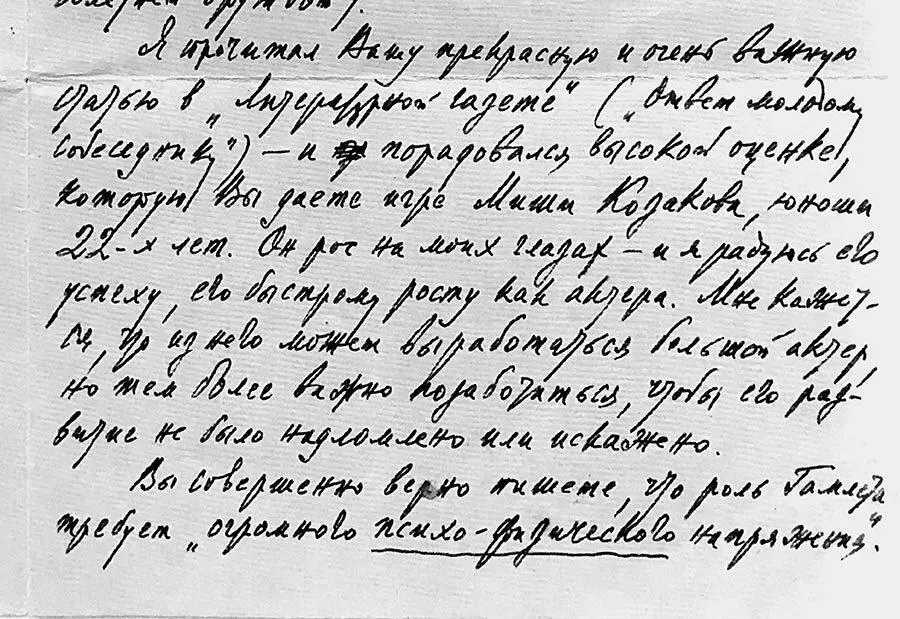 Я прочитал Вашу прекрасную и очень важную
статью в „Литературной газете" („Ответ молодому
собеседнику") — и порадовался высокой оценке,
которую Вы даете игре Миши Козакова, юноши
22-х лет. Он рос на моих глазах — и я радуюсь его
успеху, его быстрому росту как актера. Мне кажет-
ся, что из него может выработаться большой актер,
но тем более важно позаботиться, чтобы его раз-
витие не было надломлено или искажено.
Вы совершенно верно пишете, что роль Гамлета
требует „огромного психо-физического напряжения".